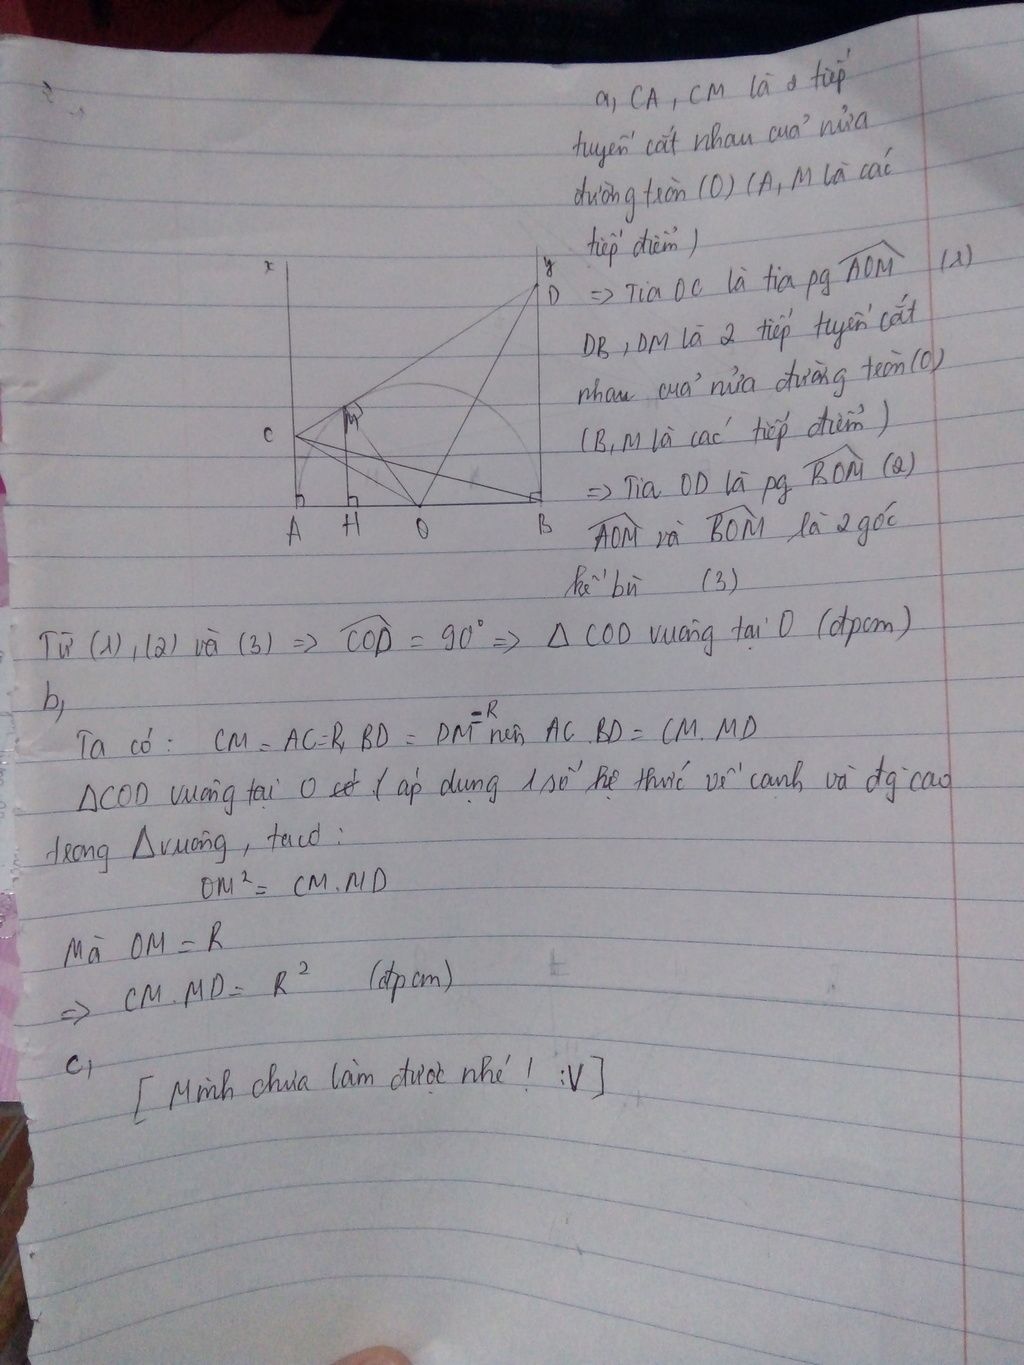 a, CA, CM là 2 tiếp
tuyến cắt nhau của nửa
đường tròn (O) (A, M là các
tiếp điểm)
x
y
D
=> Tia OC là tia pg AOM (1)
DB, DM là 2 tiếp tuyến cắt
nhau của nửa đường tròn (O)
(B, M là các tiếp điểm)
C
M
=> Tia OD là pg BOM (2)
A
H
O
B
AOM và BOM là 2 góc
kề bù (3)
Từ (1), (2) và (3) => COD = 90° => Δ COD vuông tại O (đpcm)
b,
Ta có: CM = AC=R, BD = DM =R nên AC.BD = CM.MD
ΔCOD vuông tại O ( áp dụng 1 số hệ thức về cạnh và đg cao
trong Δvuông, ta có:
OM² = CM.MD
Mà OM = R
=> CM.MD = R² (đpcm)
c,
[ Mình chưa làm được nhé! :V ]